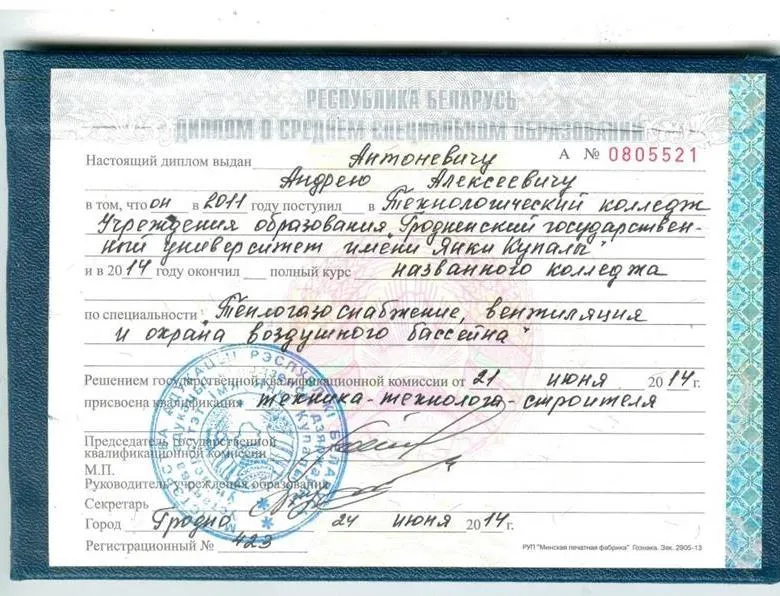 РЕСПУБЛИКА БЕЛАРУСЬ
ДИПЛОМ О СРЕДНЕМ СПЕЦИАЛЬНОМ ОБРАЗОВАНИИ
Настоящий диплом выдан Антоневичу А № 0805521
Андрею Алексеевичу
в том, что он в 2011 году поступил в "Технологический колледж
Учреждения образования "Гродненский государствен-
ный университет имени Янки Купалы"
и в 2014 году окончил полный курс названного колледжа
по специальности "Теплогазоснабжение, вентиляция
и охрана воздушного бассейна"
Решением государственной квалификационной комиссии от 21 июня 2014 г.
присвоена квалификация техника-технолога-строителя
Председатель государственной
квалификационной комиссии
М.П.
Руководитель учреждения образования
Секретарь
Город Гродно 24 июня 2014 г.
Регистрационный № 423
РУП "Минская печатная фабрика" Гознака. Зак. 2905-13